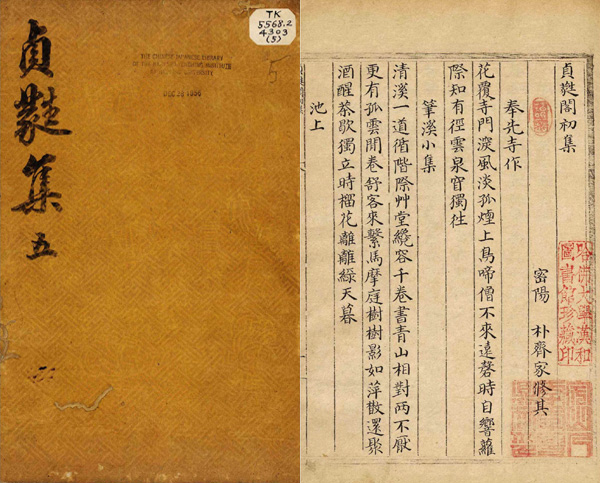 TK
5568.2
4303
(5)
THE CHINESE-JAPANESE LIBRARY
OF THE HARVARD-YENCHING INSTITUTE
AT HARVARD UNIVERSITY
貞蕤集 五
貞蕤閣初集
密陽 朴齊家修其
奉先寺作
花覆寺門深風淡孤煙上鳥啼僧不來遠磬時自響蘿
際知有徑雲泉窅獨徃
筆溪小集
清淡一道循階際艸堂纔容千卷書青山相對兩不厭
更有孤雲閒卷舒客來繫馬摩庭樹樹影如萍散還聚
酒醒茶歇獨立時榴花離離綠天暮
池上
哈佛大學漢和
圖書館珍藏印